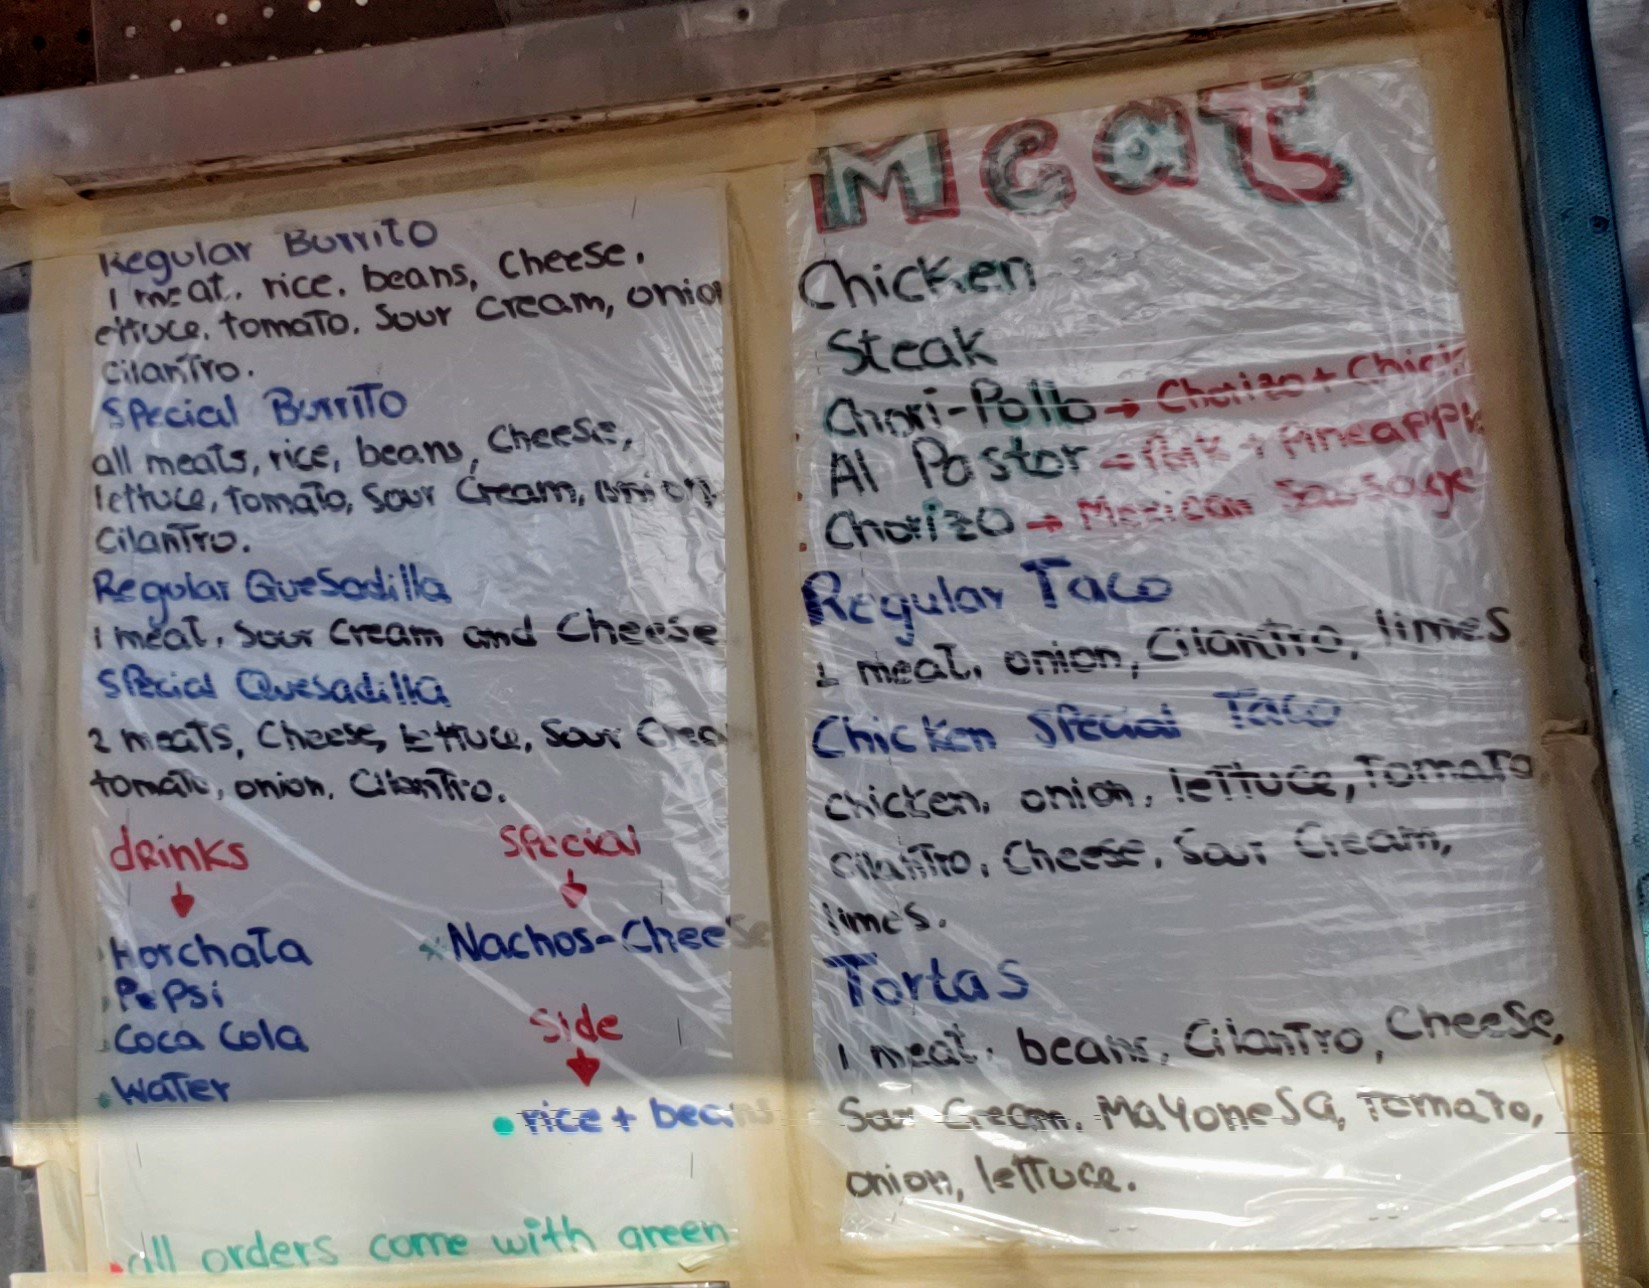 Regular Burrito
1 meat, rice, beans, Cheese,
ettuce, tomato, Sour Cream, onion
cilantro.
Special Burrito
all meats, rice, beans, Cheese,
lettuce, tomato, Sour Cream, onion,
Cilantro.
Regular Quesadilla
1 meat, Sour Cream and Cheese
Special Quesadilla
2 meats, Cheese, Lettuce, Sour Crea
tomato, onion, Cilantro.
drinks
Horchata
Pepsi
Coca Cola
Water
Special
Nachos-Cheese
Side
rice + beans
all orders come with green
Meat
Chicken
Steak
Chori-Pollo → Chorizo + Chick
Al Pastor → Pork + Pineapple
Chorizo → Mexican Sausage
Regular Taco
1 meat, onion, Cilantro, limes
Chicken Special Taco
chicken, onion, lettuce, Tomato,
cilantro, Cheese, Sour Cream,
limes.
Tortas
1 meat, beans, Cilantro, Cheese,
Sour Cream, Mayonesa, Tomato,
onion, lettuce.